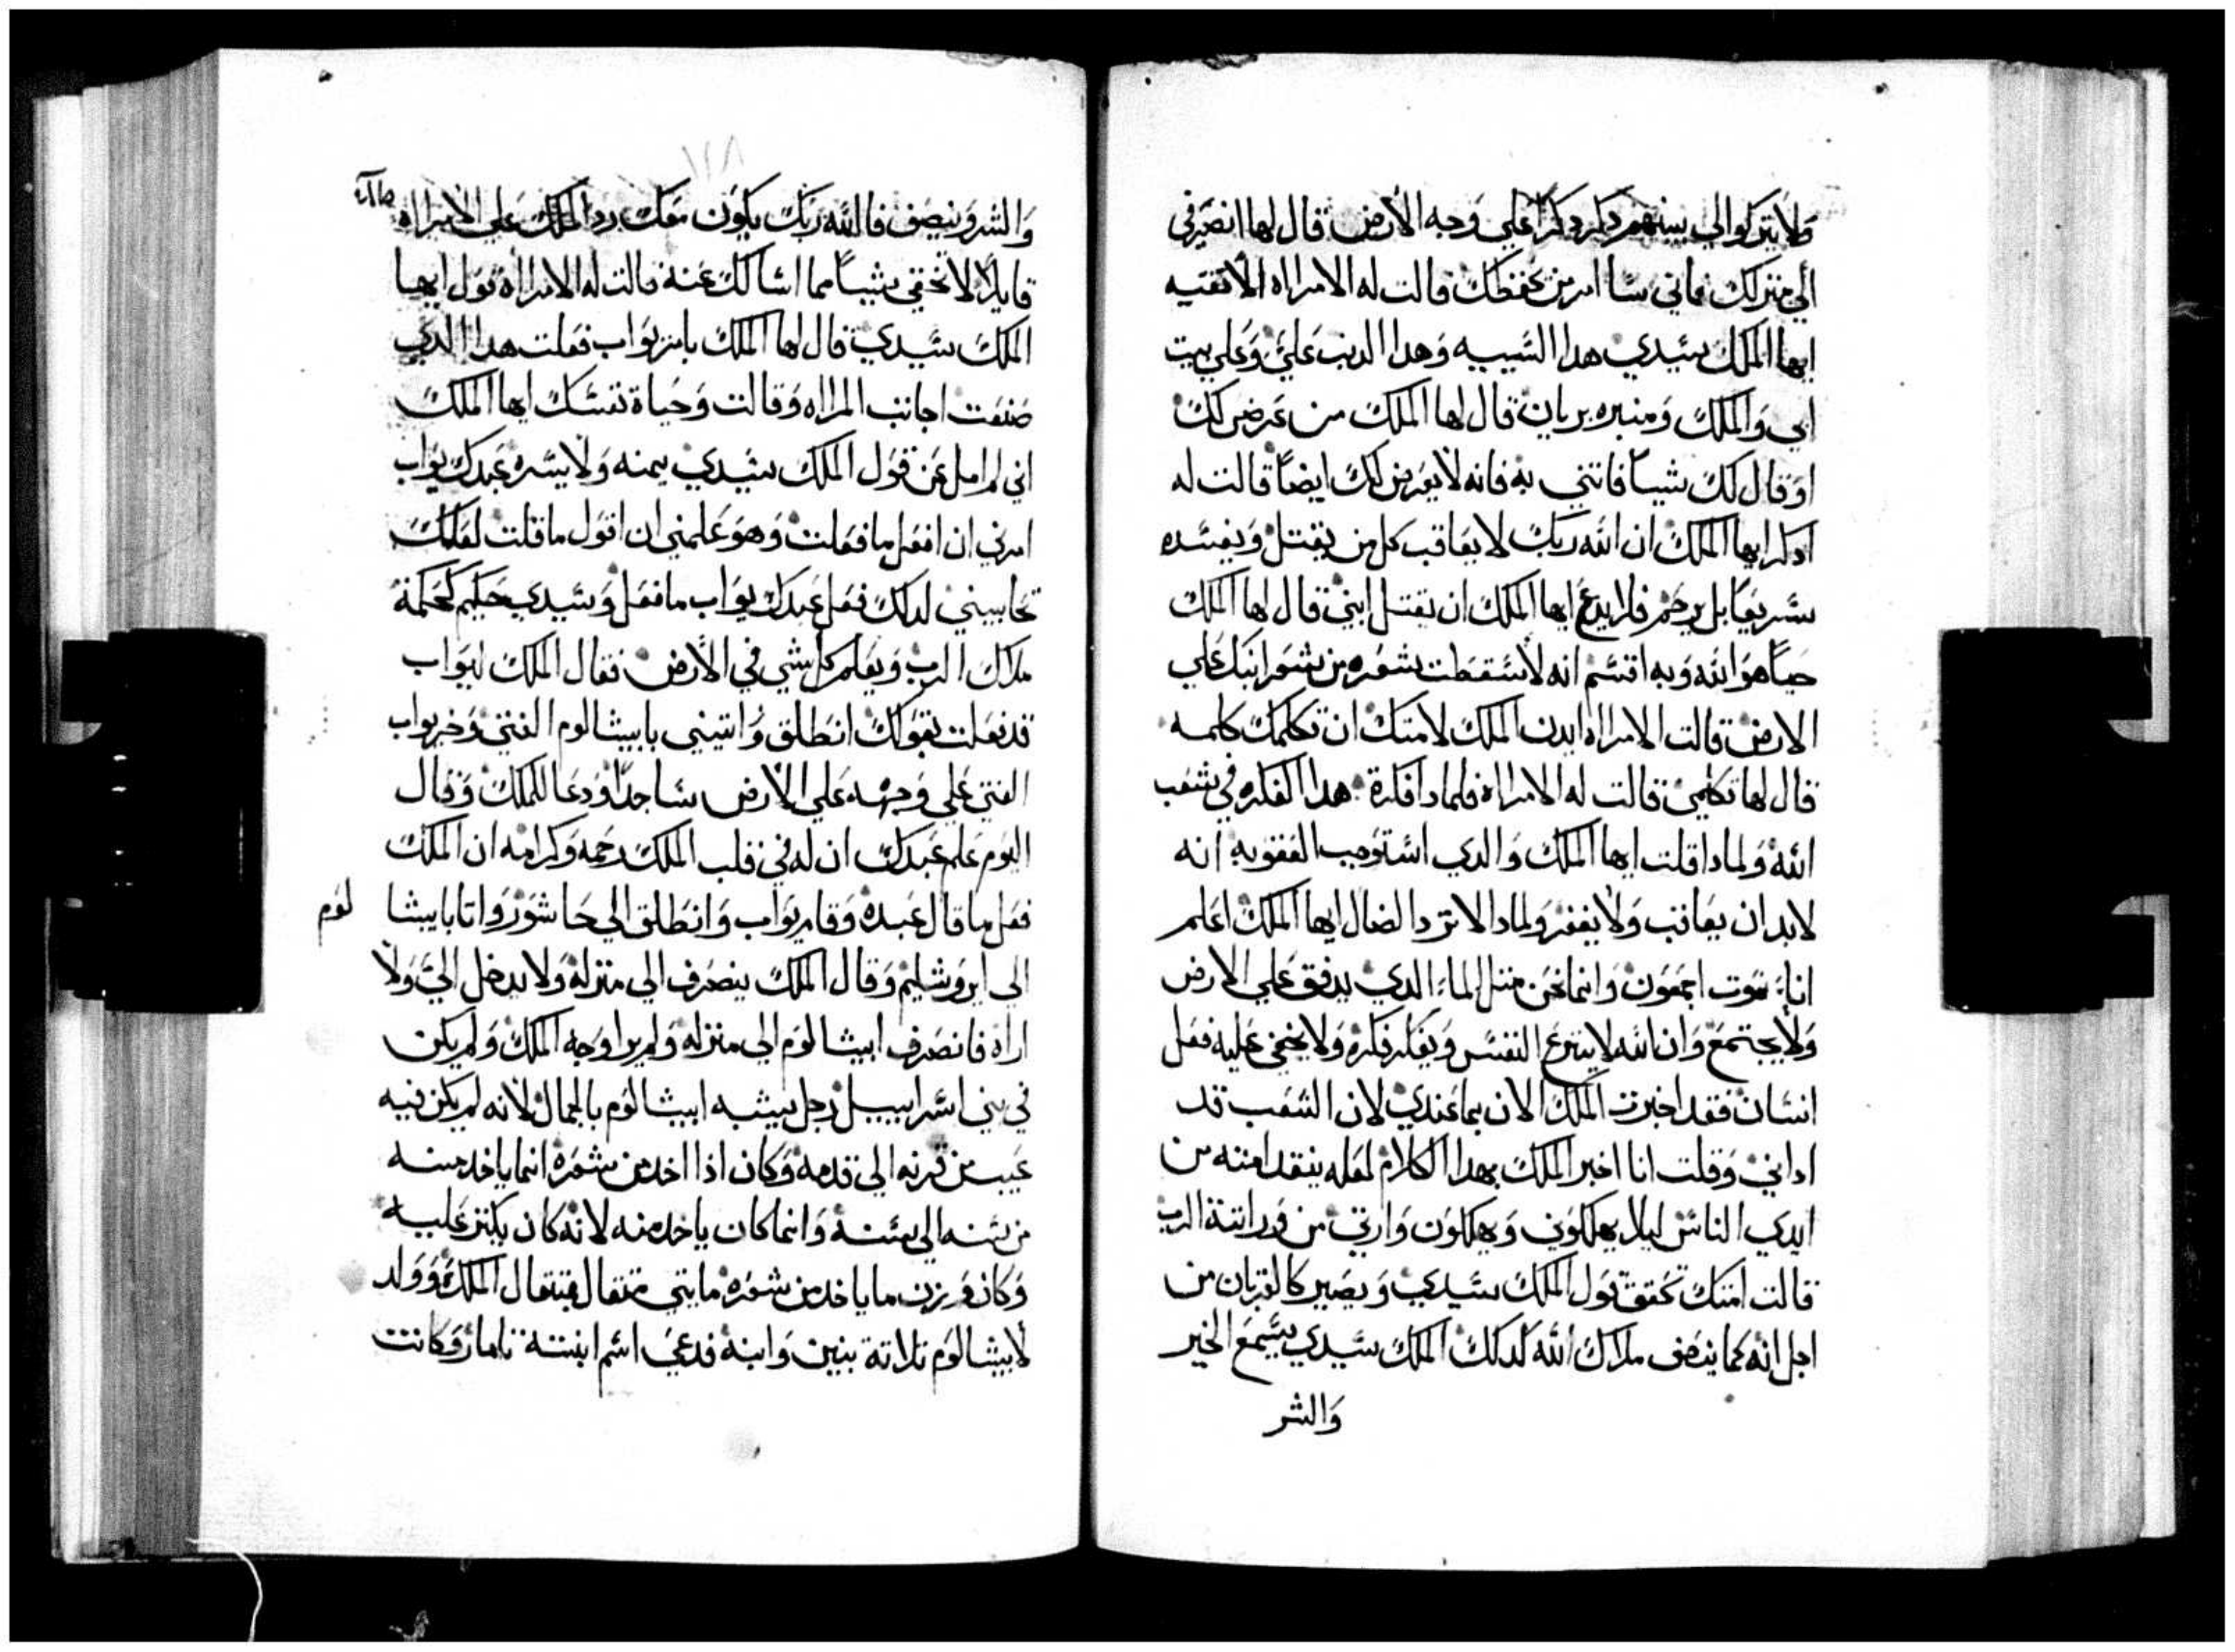 ولا يتركوا لي بينهم دكر دكرا علي وجه الارض قال لها انصرفي
الي منزلك فاني سا امر من يحفظك قالت له الامراه الا تقتيه
ايها الملك سيدي هدا السيبه وهدا الدنب علي وعلي بيت
ابي والملك ومنبره بريان قال لها الملك من عرض لك
او قال لك شيا فاتني به فانه لا يعرض لك ايضا قالت له
ادكر ايها الملك ان الله ربك لا يعاقب كل من يقتل ويفسده
سريعا بل يرحم فلا يدع ايها الملك ان يقتل ابني قال لها الملك
حيا هو الله وبه اقسم انه لا سقطت شعره من شعر ابنك علي
الارض قالت الامراه ايدن الملك لامتك ان تكلمك كلمه
قال لها تكلمي قالت له الامراه فلمادا فكرة هدا الفكره في شعب
الله ولمادا قلت ايها الملك والدي استوجب العقوبه انه
لابد ان يعاقب ولا يغفر ولمادا لا ترد الضال ايها الملك اعلم
انا نموت اجمعون وانما نحن مثل الماء الدي يدفق علي الارض
ولا يجتمع وان الله لا ينزع النفس ويفكر فكره ولا يخفي عليه فعل
انسان فقد اخبرت الملك الان بما عندي لان الشعب قد
اداني وقلت انا اخبر الملك بهدا الكلام لعله ينقد امته من
ايدي الناس ليلا يهلكوني ويهلكون وارتي من وراتة الرب
قالت امتك تحقق قول الملك سيدي ويصير كالقربان من
اجل انه كما ينصف ملاك الله كدلك الملك سيدي يسمع الخير
والشر
١٢٨
والشر وينصف فالله ربك يكون معك رد الملك علي الامراه
قايلا لا تخفي شيا مما اسالك عنه قالت له الامراة قول ايها
الملك سيدي قال لها الملك بامر يواب فعلت هدا الدي
صنعت اجابت المراه وقالت وحياة نفسك ايها الملك
اني لم امل عن قول الملك سيدي يمنه ولا يسره عبدك يواب
امرني ان افعل ما فعلت وهو علمني ان اقول ما قلت لعلك
تحاسبني لدلك فعل عبدك يواب ما فعل وسيدي حكيم كحكمة
ملاك الرب ويعلم كل شي في الارض فقال الملك ليواب
قد فعلت بقولك انطلق واتيني بابيشالوم الفتي وخر يواب
الفتي علي وجهه علي الارض ساجدا ودعا للملك وقال
اليوم علم عبدك ان له في قلب الملك رحمه وكرامه ان الملك
فعل ما قال عبده وقام يواب وانطلق الي حاشور واتا بابيشا لوم
الي ايروشليم وقال الملك ينصرف الي منزله ولا يدخل الي ولا
اراه فانصرف ابيشالوم الي منزله ولم يرا وجه الملك ولم يكن
في بني اسراييل رجل يشبه ابيشالوم بالجمال لانه لم يكن فيه
عيب من قرنه الي قدمه وكان ادا اخد من شعره انما ياخد منه
من سنه الي سنه وانما كان ياخد منه لانه كان يكتر عليه
وكان وزن ما ياخد من شعره مايتي متقال بمتقال الملك وولد
لابيشالوم تلاتة بنين وابنة فدعي اسم ابنته تامار وكانت